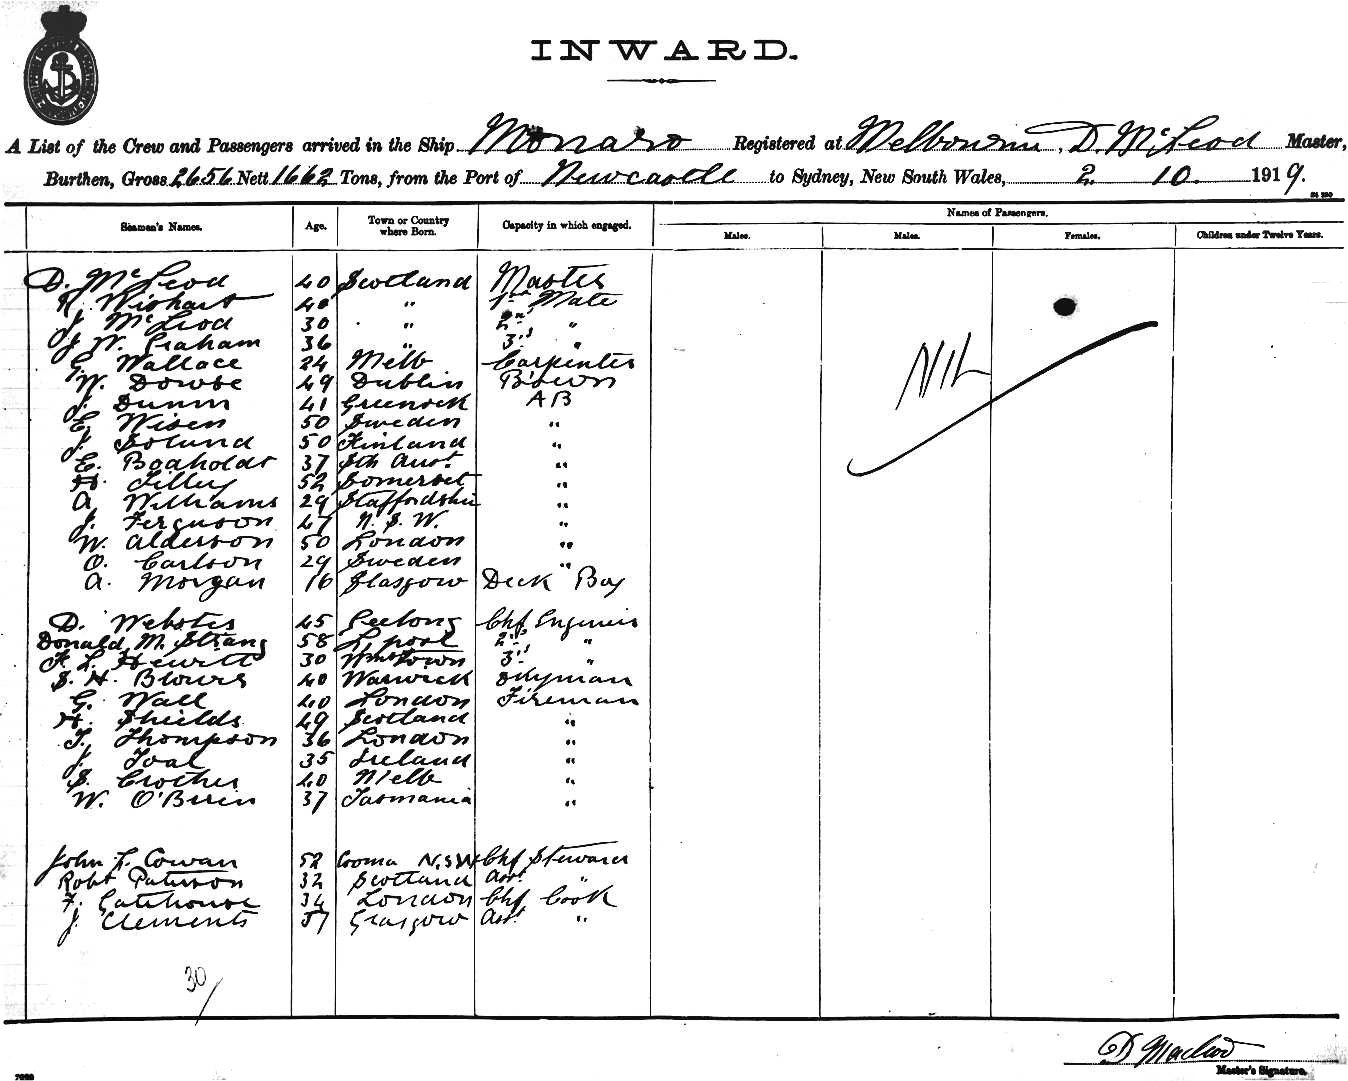 INWARD.
A List of the Crew and Passengers arrived in the Ship Monaro Registered at Melbourne, D. McLeod Master,
Burthen, Gross 2656 Nett 1662 Tons, from the Port of Newcastle to Sydney, New South Wales, 2 10. 1919.
Seamen's Names. Age. Town or Country where Born. Capacity in which engaged. Names of Passengers.
Males. Males. Females. Children under Twelve Years.
D. McLeod 40 Scotland Master
R. Wishart 48 " 1st Mate
J. McLeod 30 " 2nd "
J. W. Graham 36 " 3rd "
G. Wallace 24 Melb Carpenter
W. Dowse 49 Dublin B'swn
J. Dunn 41 Greenock AB
E. Wisen 50 Sweden "
J. Solund 50 Finland "
E. Boaholdt 37 Sth Aust. "
H. Tilley 52 Somerset "
A Williams 29 Staffordshire "
J. Ferguson 47 N. S. W. "
W. Alderson 50 London "
O. Carlson 29 Sweden "
A. Morgan 16 Glasgow Deck Boy
D. Webster 45 Geelong Chf Engineer
Donald M. Strang 58 L'pool 2nd "
F. L. Hewitt 30 Wmstown 3rd "
S. H. Blowes 40 Warwick Dkyman
G. Wall 40 London Fireman
H. Shields 49 Scotland "
T. Thompson 36 London "
J. Toal 35 Ireland "
S. Crother 40 Melb "
W. O'Brien 37 Tasmania "
John L. Cowan 52 Cooma N.S.W Chf Steward
Robt Paterson 32 Scotland Asst. "
F. Gatehouse 34 London Chf Cook
J. Clements 57 Glasgow Asst. "
Nil
30/
D Macleod
Master's Signature.